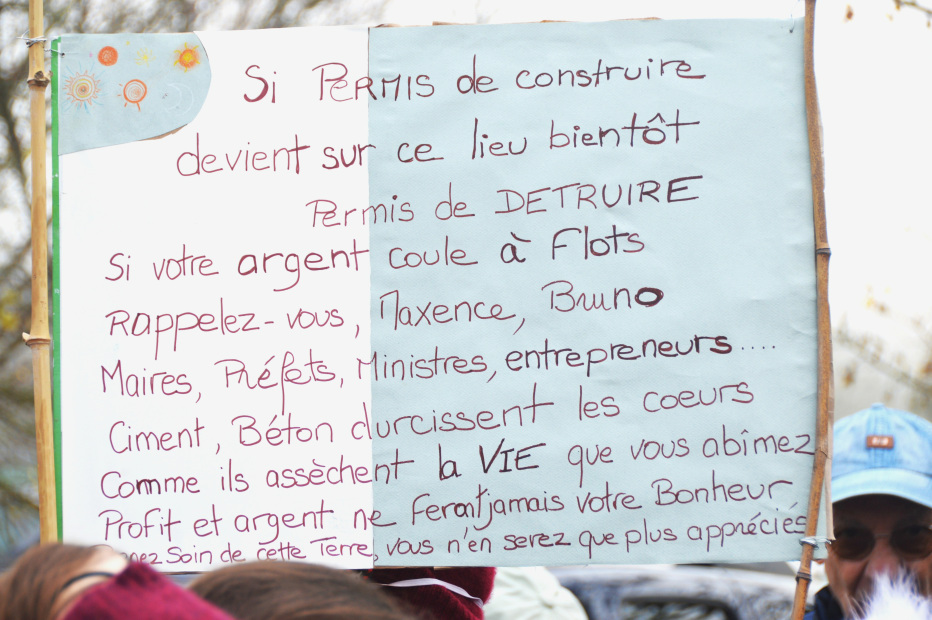 Si PERMIS de construire
devient sur ce lieu bientôt
Permis de DETRUIRE
Si votre argent coule à Flots
Rappelez-vous, Maxence, Bruno
Maires, Préfets, Ministres, entrepreneurs....
Ciment, Béton durcissent les coeurs
Comme ils assèchent la VIE que vous abîmez
Profit et argent ne Feront jamais votre Bonheur
Soin de cette Terre, vous n'en serez que plus appréciés